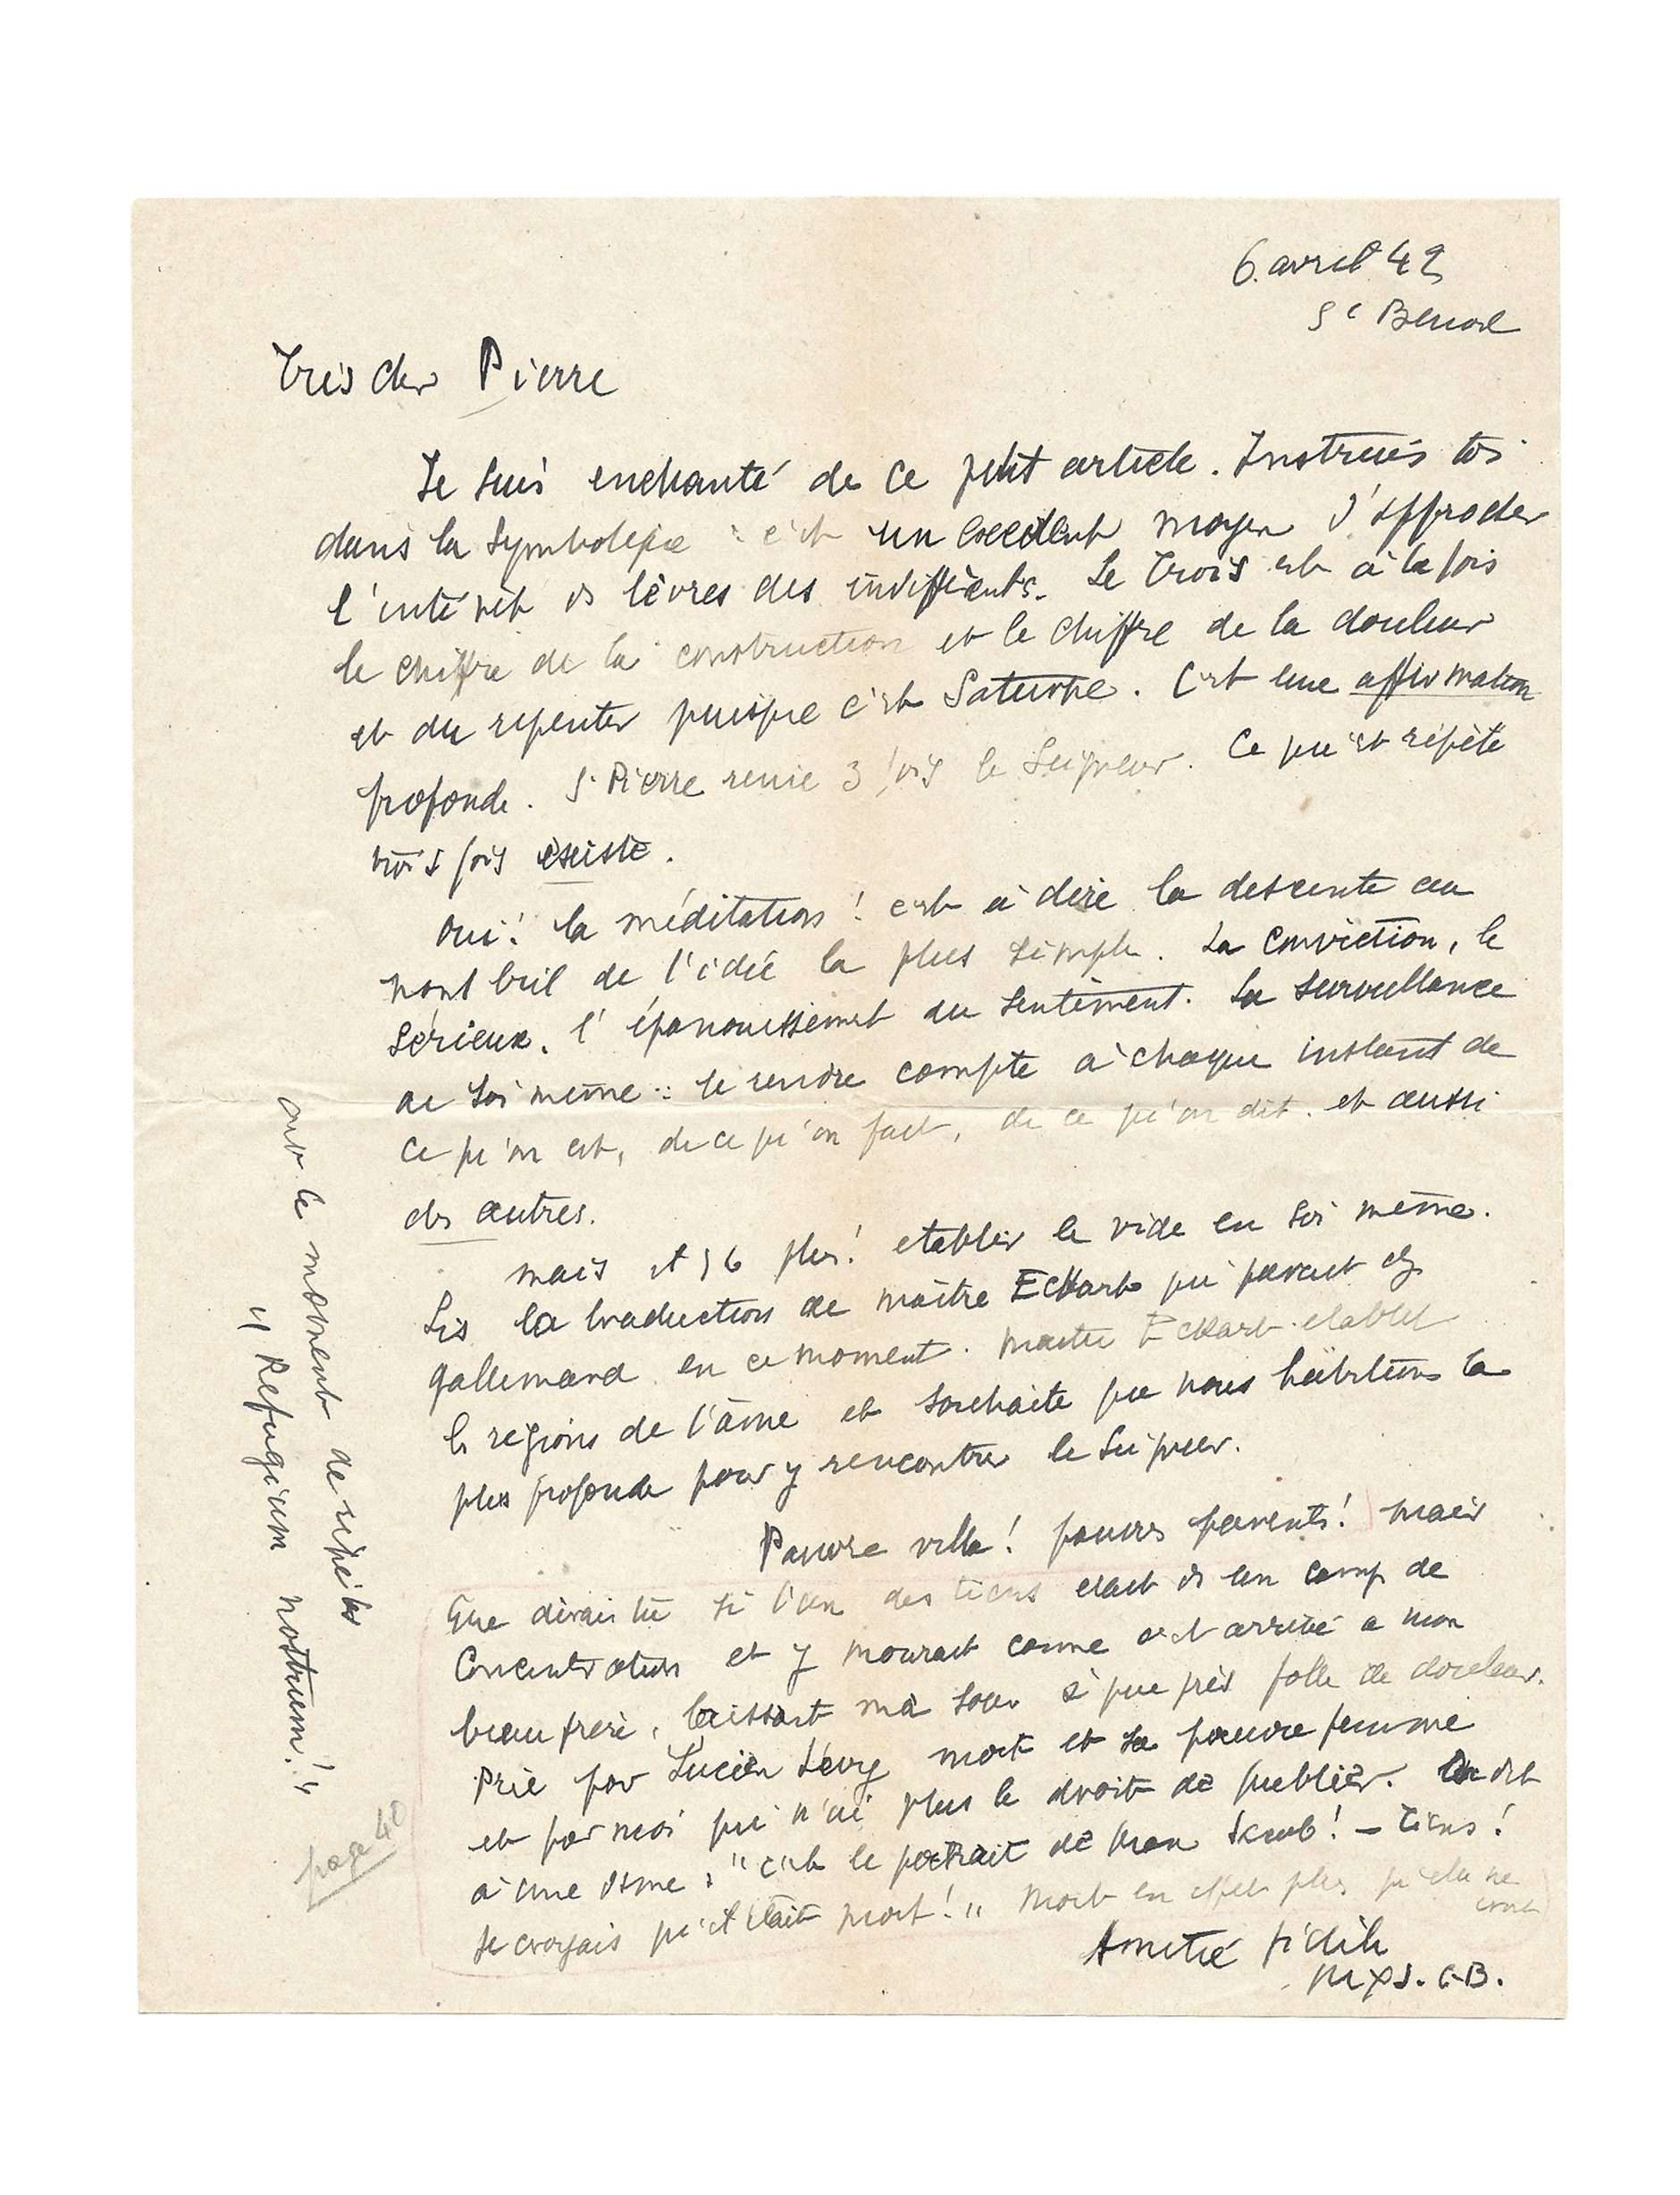 6. avril 42
St Benoit
Très cher Pierre
Je suis enchanté de ce petit article. Instruis toi
dans la symbolique : c'est un excellent moyen d'approcher
l'intérêt ds lèvres des indifférents. Le Trois est à la fois
le chiffre de la construction et le chiffre de la douleur
et du repentir puisque c'est Saturne. C'est une affirmation
profonde. St Pierre renie 3 fois le Seigneur. Ce qui est répété
trois fois existe.
Oui! la méditation! c'est à dire la descente au
nombril de l'idée la plus simple. La conviction, le
sérieux, l'épanouissement du sentiment. La surveillance
de soi même : se rendre compte à chaque instant de
ce qu'on est, de ce qu'on fait, de ce qu'on dit. et aussi
des autres.
mais et plus! etablir le vide en soi même.
Lis la traduction de maître Eckart qui parait chz
gallimard en ce moment. Maître Eckart etablit
ls régions de l'âme et souhaite que nous habitions la
plus profonde pour y rencontrer le Seigneur.
Pauvre ville! pauvres parents! mais
Que dirais tu si l'un des tiens etait ds un camp de
Concentration et y mourait comme c'est arrivé a mon
beau frère, laissant ma sœur à peu près folle de douleur.
Prie pour Lucien Lévy mort et sa pauvre femme
et pour moi qui n'ai plus le droit de publier. On dit
à une dame : "c'est le portrait de Max Jacob! – Tiens!
Je croyais qu'il était mort!" Mort en effet plus qu'elle ne
croit
Amitié fidèle
Max J. C-B.
c'est le moment de répéter
"Refugium nostrum!"
page 40